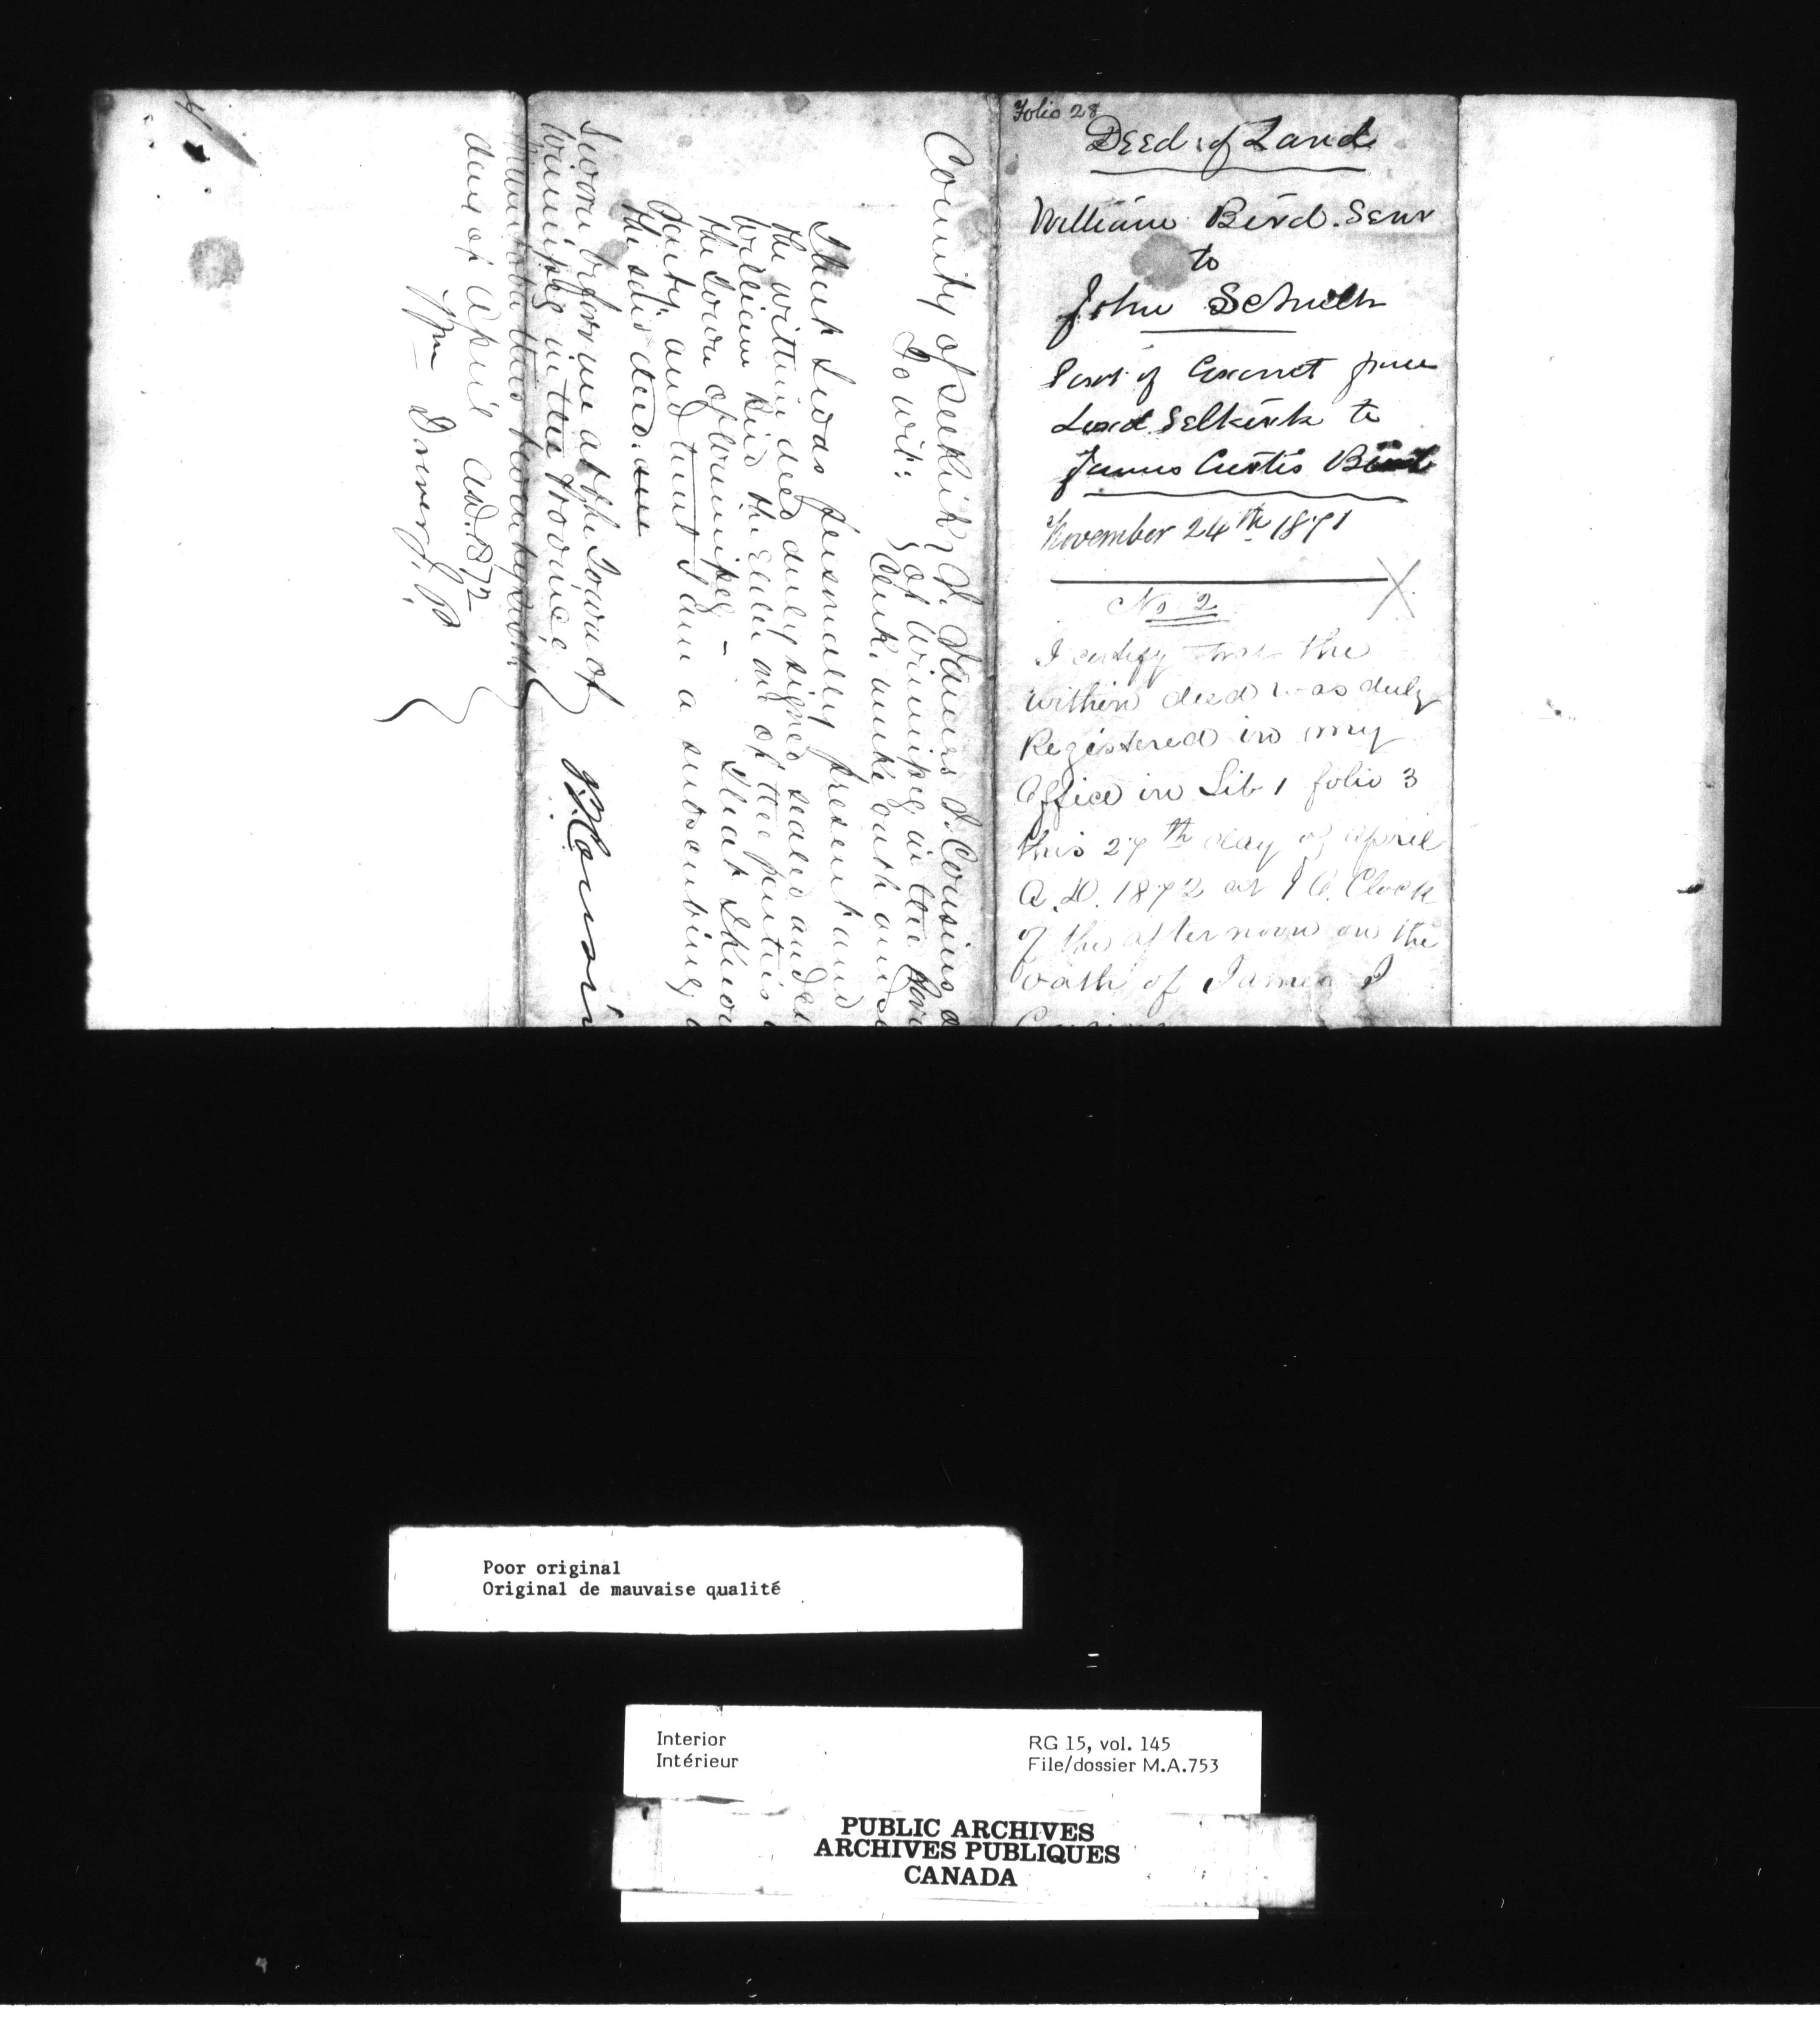 Folio 28
Deed of Land
William Bird. Senr
to
John Schultz
Part of Grant from
Lord Selkirk to
James Curtis Bird
November 24th 1871
No 2
I certify that the
within deed was duly
Registered in my
Office in Lib 1 folio 3
this 27th day of April
A.D. 1872 at 1 O.Clock
of the afternoon on the
oath of James J
County of Selkirk } I. James J. Cousins
To wit: } of Winnipeg in the
Clerk make oath and
That I was personally present and
the within deed duly signed sealed and
William Bird the Elder one of the parties
the Town of Winnipeg - That I know
Party, and that I am a subscribing
the said deed.
Sworn before me at the Town of
Winnipeg in the Province
Manitoba this twenty
day of April A.D. 1872
J J Cousin
Poor original
Original de mauvaise qualité
Interior
Intérieur
RG 15, vol. 145
File/dossier M.A.753
PUBLIC ARCHIVES
ARCHIVES PUBLIQUES
CANADA